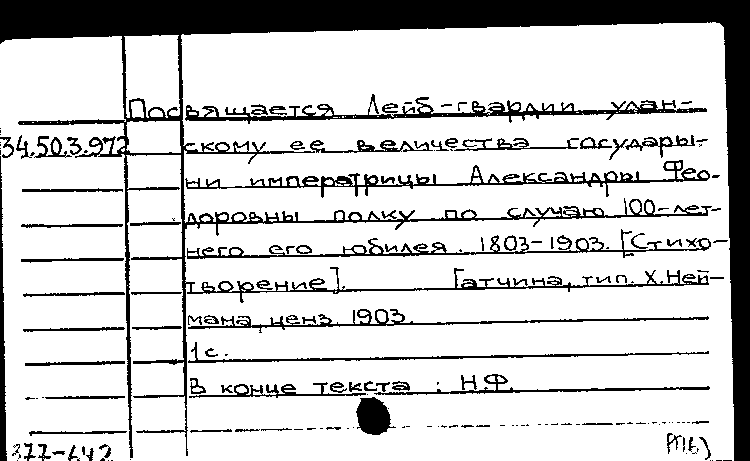 Посвящается Лейб-гвардии улан-
34.50.3.972 скому ее величества государы-
ни императрицы Александры Фео-
доровны полку по случаю 100-лет-
него его юбилея. 1803-1903. [Стихо-
творение]. Гатчина, тип. Х.Ней-
мана, ценз. 1903.
1 с.
В конце текста : Н.Ф.
377-642